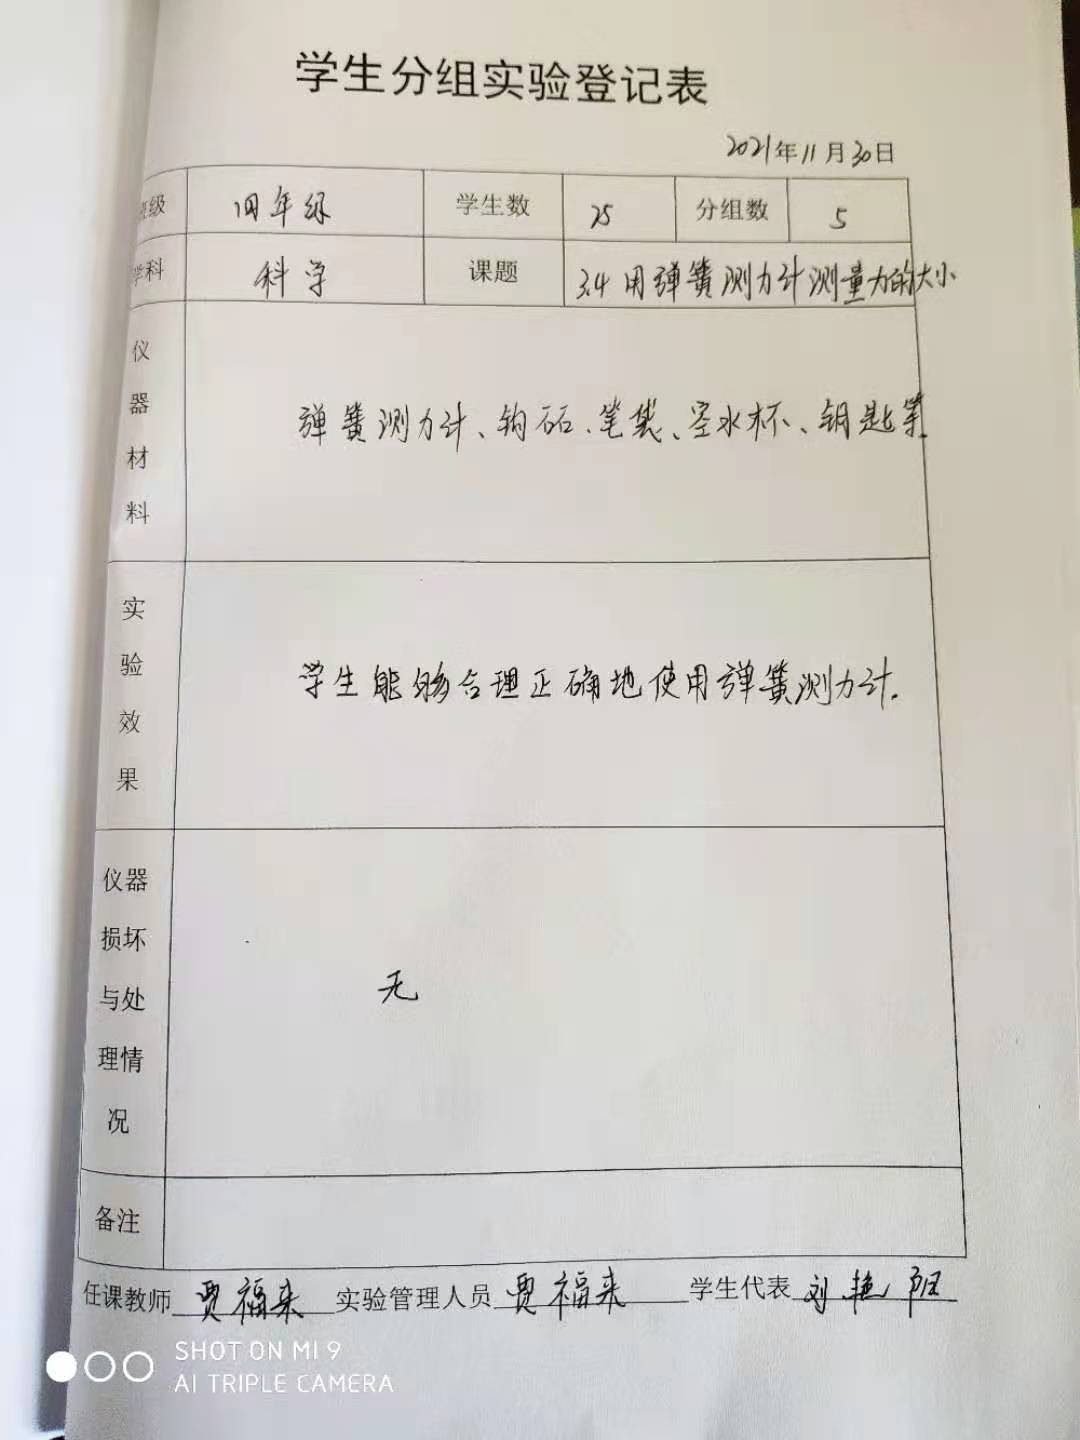 学生分组实验登记表
2021年11月30日
班级 四年级 学生数 25 分组数 5
学科 科学 课题 3.4 用弹簧测力计测量力的大小
仪器材料 弹簧测力计、钩码、笔袋、空水杯、钥匙等.
实验效果 学生能够合理正确地使用弹簧测力计.
仪器损坏与处理情况 无
备注
任课教师 贾福来 实验管理人员 贾福来 学生代表 刘艳
SHOT ON MI 9
AI TRIPLE CAMERA